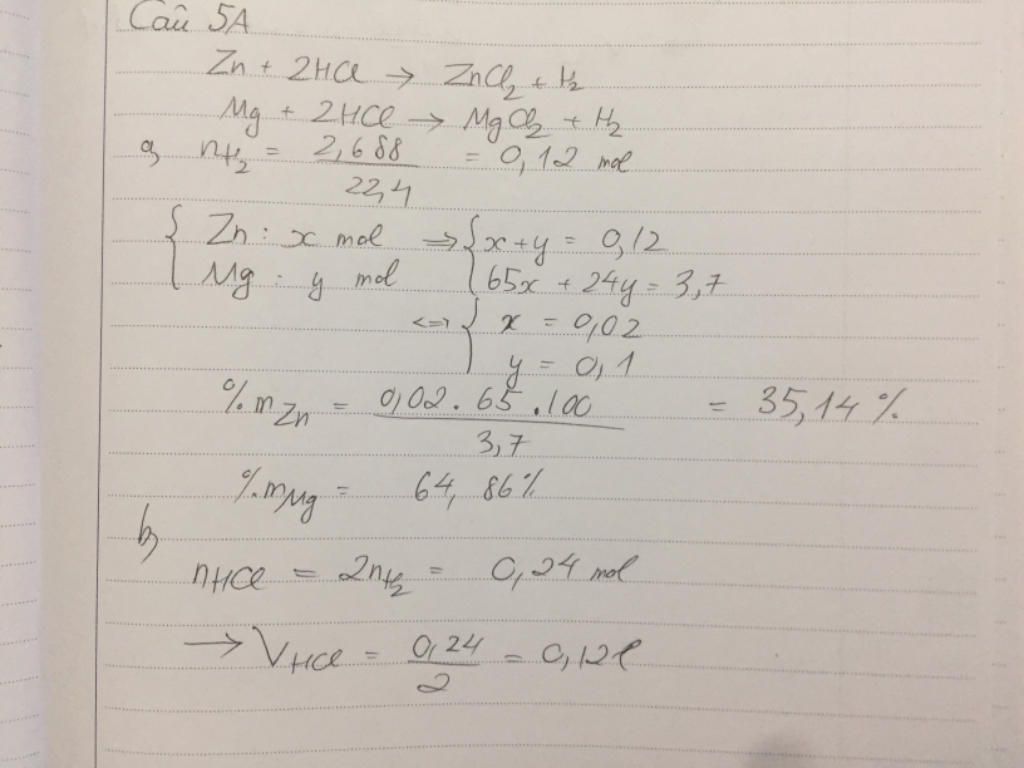 Câu 5A
Zn + 2HCl → ZnCl₂ + H₂
Mg + 2HCl → MgCl₂ + H₂
a) nH₂ = 2,688 / 22,4 = 0,12 mol
{ Zn : x mol ⇒ { x + y = 0,12
{ Mg : y mol { 65x + 24y = 3,7
<=> { x = 0,02
{ y = 0,1
%mZn = 0,02 . 65 . 100 / 3,7 = 35,14 %
%mMg = 64,86%
b)
nHCl = 2nH₂ = 0,24 mol
→ VHCl = 0,24 / 2 = 0,12l